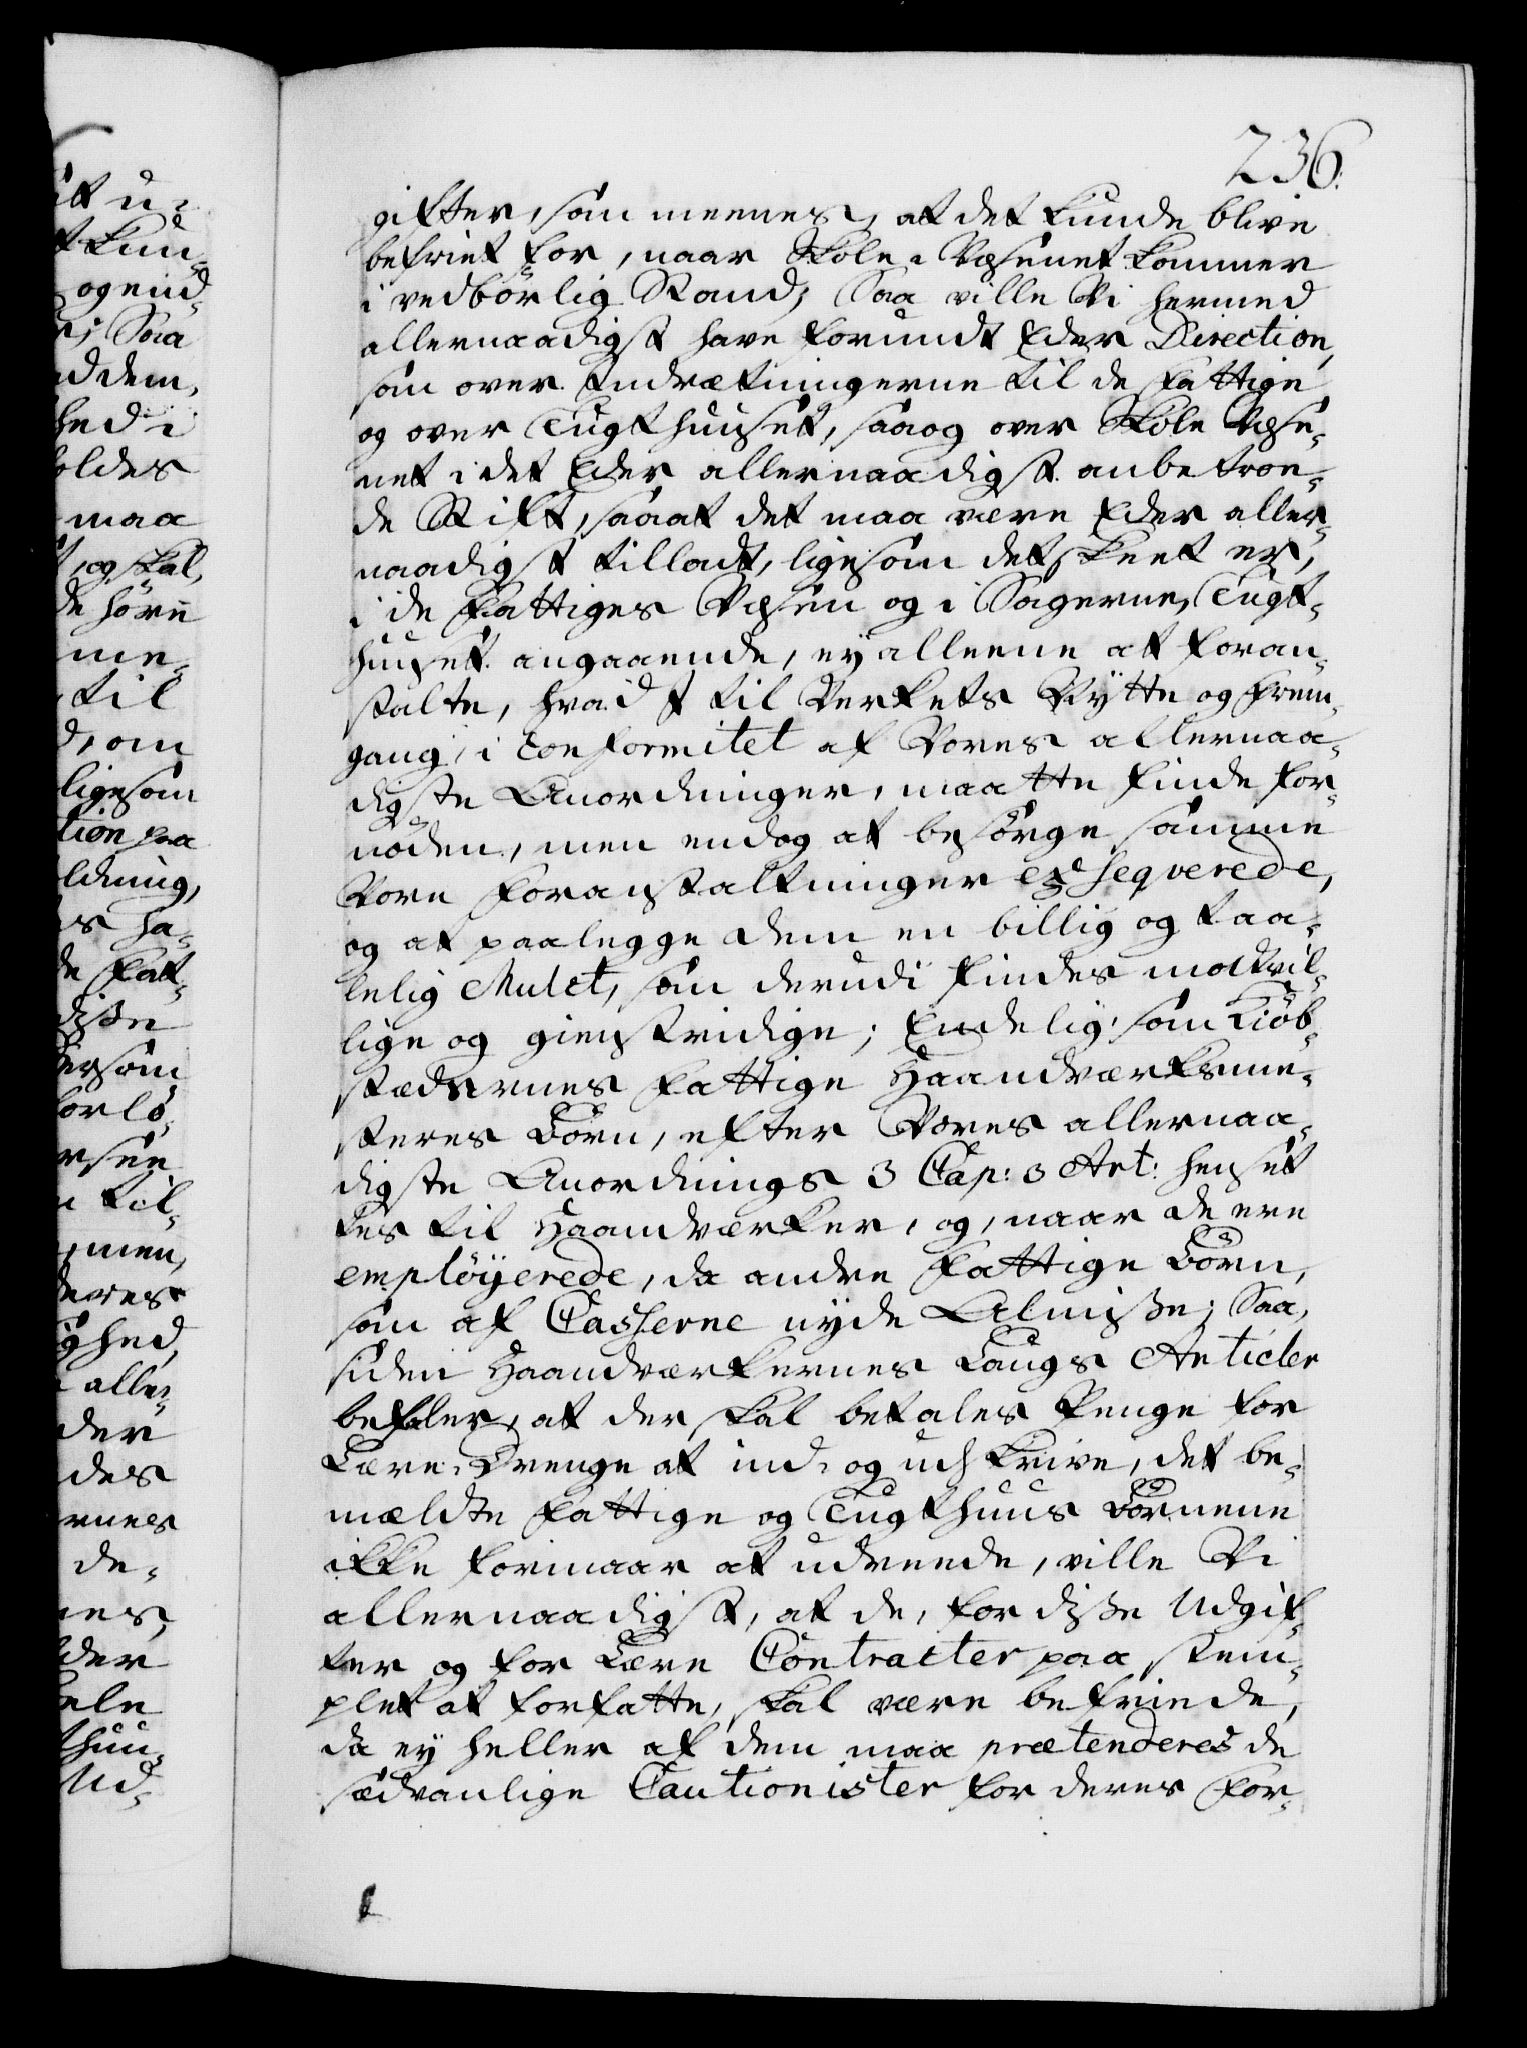 236.
gifter, som meenes, at det kunde blive
befriet for, naar Skole-Væsenet kommer
i vedbørlig Stand; Saa ville Vi hermed
allernaadigst have forundt Eder Direction,
som over Indretningerne til de Fattige
og over Tugthuuset, saa og over Skole Væse-
net i det Eder allernaadigst anbetroe-
de Stift, saa at det maa være Eder aller-
naadigst tilladt, ligesom det skeet er,
i de Fattiges Væsen og i Sagerne, Tugt-
huuset angaaende, ey alleene at foran-
stalte, hvad I til Verkets Nytte og Frem-
gang, i Conformitet af Vores allernaa-
digste Anordninger, maatte finde for-
nøden, men endog at besørge samme
Vore Foranstaltninger exseqverede,
og at paalegge dem en billig og taa-
lelig Mulct, som derudi findes modtvil-
lige og gienstridige; Endelig, som Kiøb-
stædernes Fattige Haandværksme-
steres Børn, efter Vores allernaa-
digste Anordnings 3 Cap: 3 Art: henset-
tes til Haandværker, og, naar de ere
empløyerede, da andre Fattige Børn,
som af Casserne nyde Almisse; Saa,
siden Haandværkernes Laugs Articler
befaler, at der skal betales Penge for
Lære-Drenge at ind- og udskrive, det be-
mældte Fattige og Tugthuus Børnene
ikke formaar at udreede, ville Vi
allernaadigst, at de, for disse Udgif-
ter og for Lære Contracter paa stem-
plet at forfatte, skal være befriede,
da ey heller af dem maa prætenderes de
sædvanlige Cautionister for deres For-